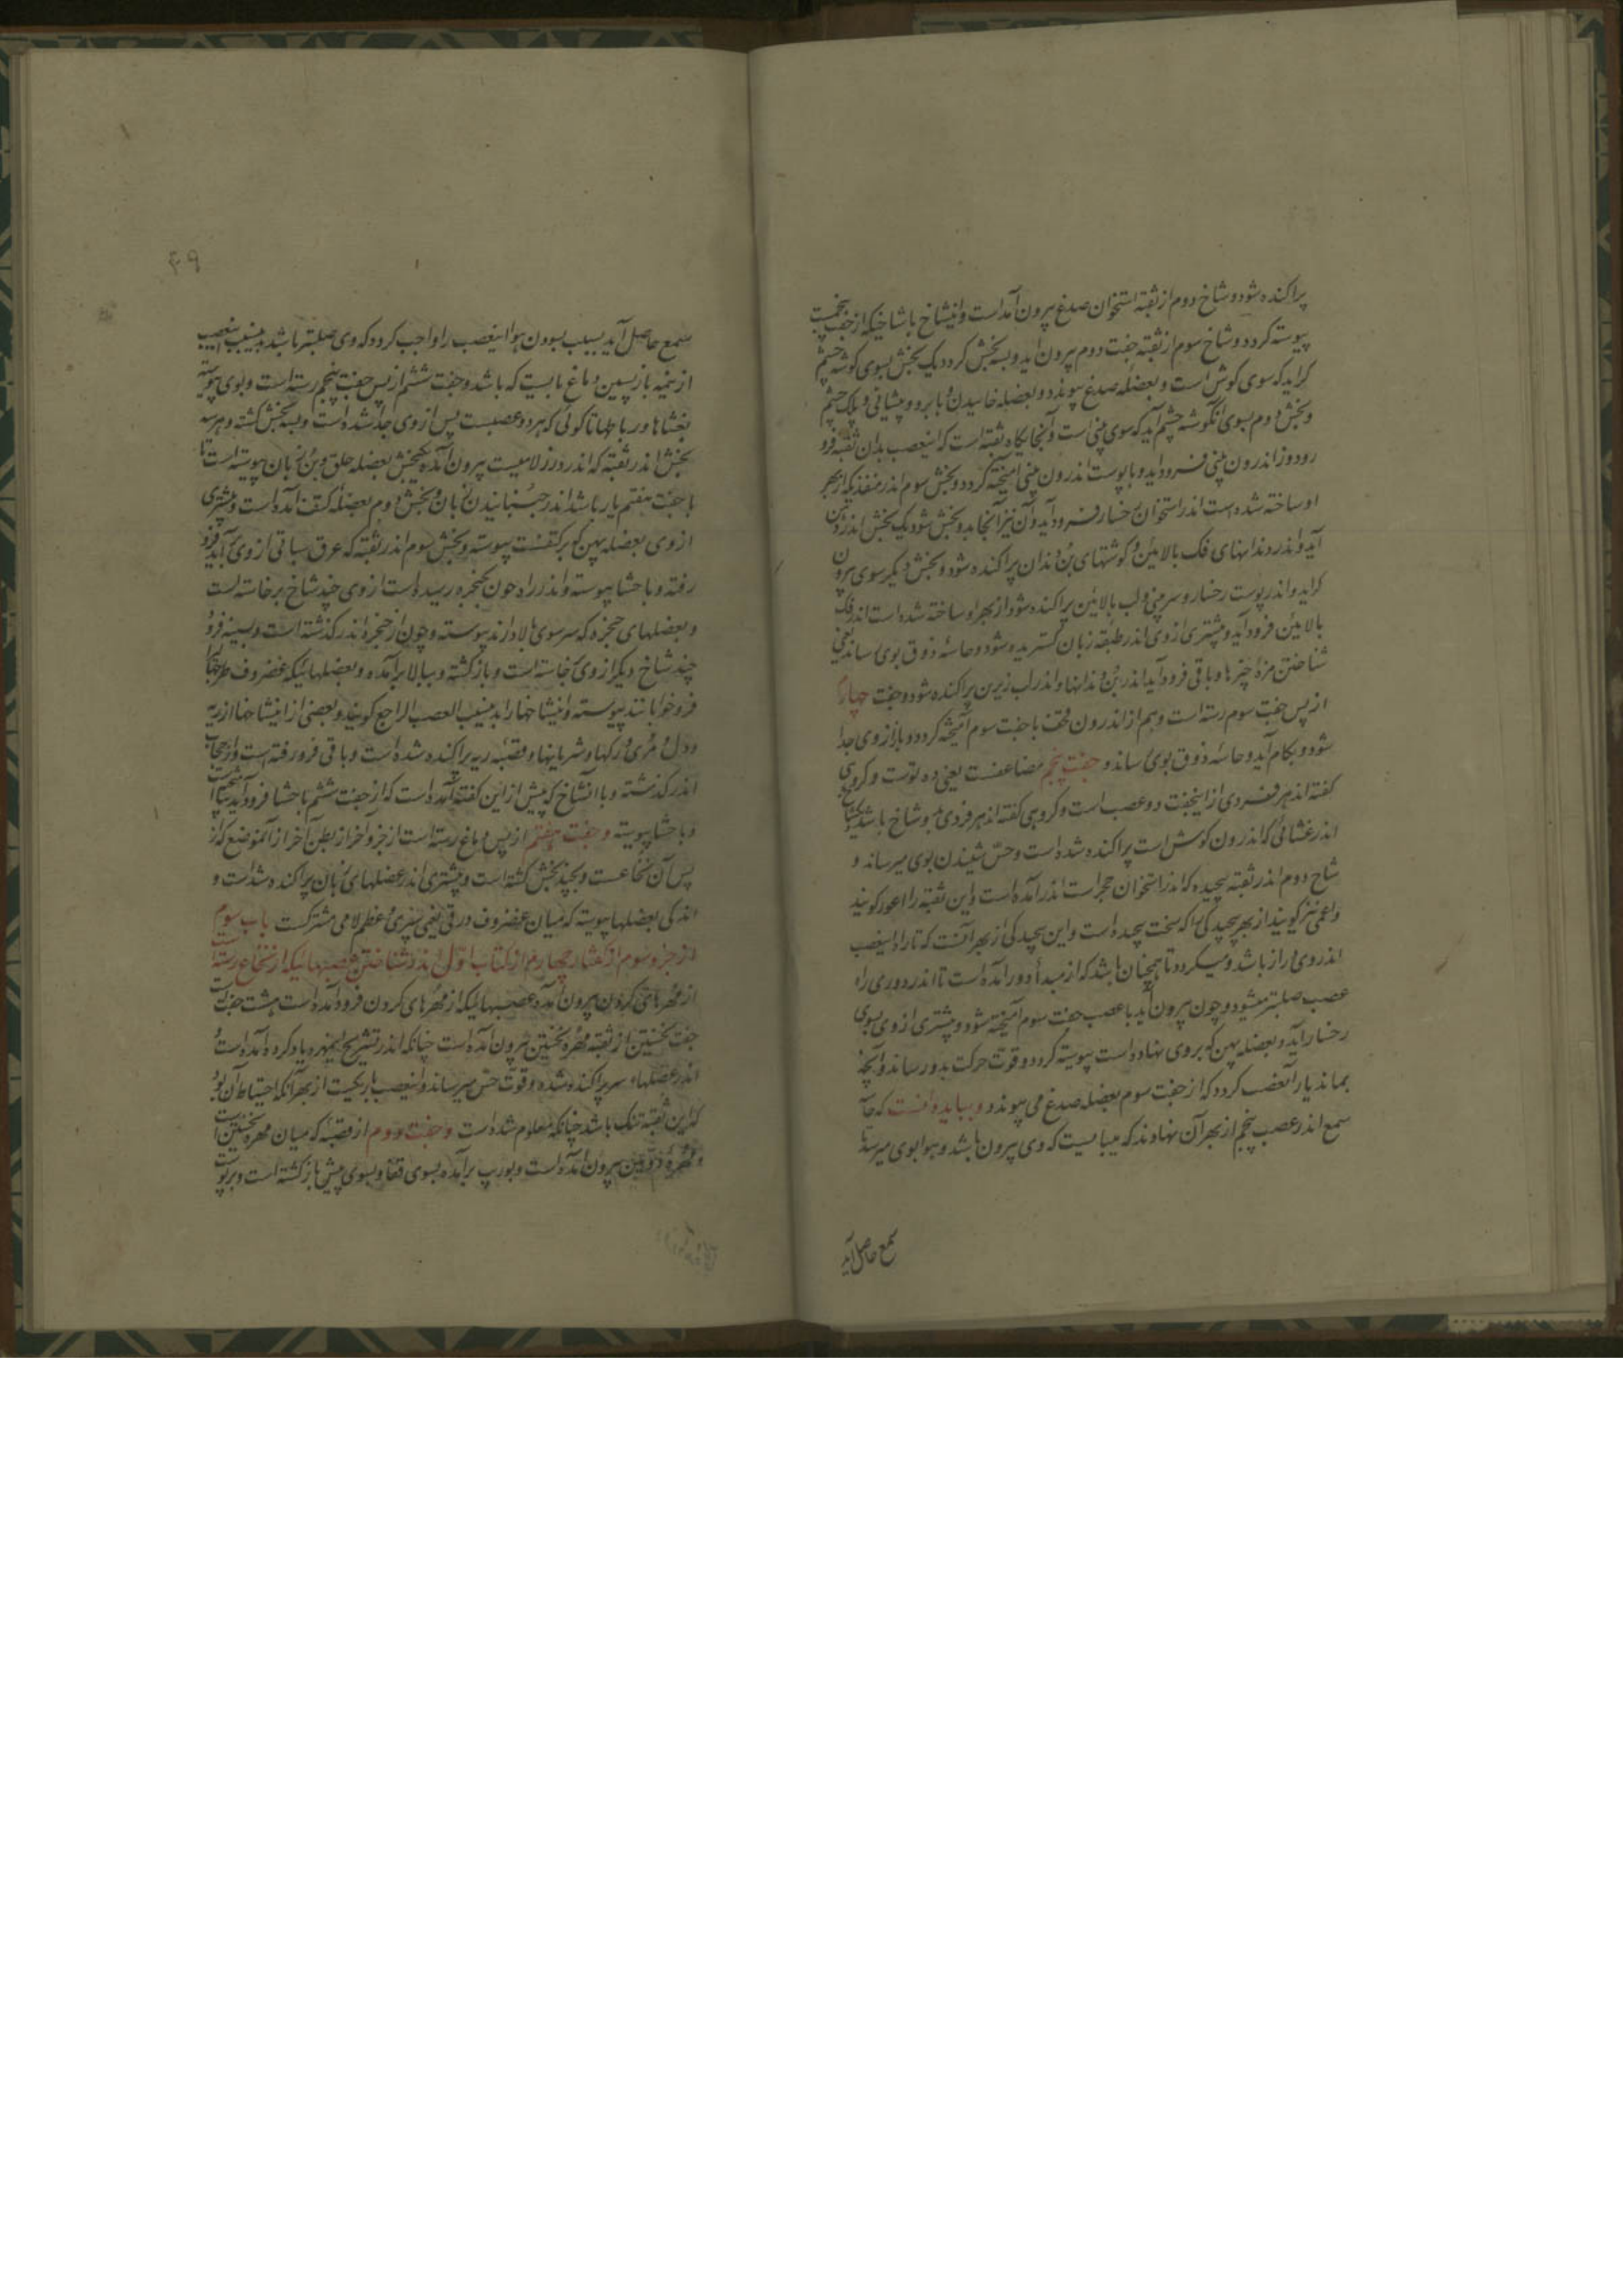 پراکنده شود و شاخ دوم از ثقبه استخوان صدغ بیرون آمده است و اینشاخ با شاخیکه از جفت پنجمست
پیوسته کردد و شاخ سوم از ثقبه جفت دوم بیرون آید و بسه بخش کردد یک بخش بسوی کوشه چشم
کراید که سوی کوش است و بعضله صدغ پیوندد و بعضله خاییدن و بابرو و پیشانی و پلک چشم
و بخش دوم بسوی آنکوشه چشم آید که سوی بینی است و آنجایکاه ثقبه است که اینعصب بدان ثقبه فرو
رود و از اندرون بینی فرود آید و با پوست اندرون بینی آمیخته کردد و بخش سوم اندر منفذیکه از بهر
او ساخته شده است اندر استخوان رخسار فرود آید و آن نیز آنجا بدو بخش شود یک بخش اندرون
آید و اندر دندانهای فک بالایین و کوشتهای بن دندان پراکنده شود و بخش دیکر سوی بیرون
کراید و اندر پوست رخسار و سر بینی و لب بالایین پراکنده شود از بهر او ساخته شده است اندر فک
بالایین فرود آید و بیشتری از وی اندر طبقه زبان کستریده شود و حاسه ذوق بوی رساند یعنی
شناختن مزه چیزها و باقی فرود آید اندر بن دندانها و اندر لب زیرین پراکنده شود و جفت چهارم
از پس جفت سوم رسته است و هم از اندرون قحف با جفت سوم آمیخته کردد و باز از وی جدا
شود و بکام آید و حاسه ذوق بوی رساند و جفت پنجم مضاعفست یعنی ده توست و کروهی
کفته اند هر فردی از اینجفت دو عصب است و کروهی کفته اند هر فردی بدو شاخ باشد یکشاخ
اندر غشائی که اندرون کوش است پراکنده شده است و حس شنیدن بوی میرساند و
شاخ دوم اندر ثقبه پیچیده که اندر استخوان حجر است اندر آمده است و این ثقبه را اعور کویند
و اعمی نیز کویند از بهر پیچیدکی را که سخت پیچیده است و این پیچیدکی از بهر آنست که تا راه اینعصب
اندر وی دراز باشد و میکردد تا همچنان باشد که از مبدأ دور آمده است تا اندر دوری راه
عصب صلبتر میشود و چون بیرون آید با عصب جفت سوم آمیخته شود و بیشتری از وی بسوی
رخسار آید و بعضله پهن که بروی نهاده است پیوسته کردد و قوت حرکت بدو رساند و آنچه
بماند یار آنعضب کردد که از جفت سوم بعضله صدغ می پیوندد و بباید دانست که حاسه
سمع اندر عصب پنجم از بهر آن نهادند که میبایست که وی بیرون باشد و هوا بوی میرسد تا
سمع حاصل آید
۴۹
سمع حاصل آید بسبب بسودن هوا اینعصب را واجب کردد که وی صلبتر باشد بدین سبب اینعصب
از نیمه بازپسین دماغ بایست که باشد و جفت ششم از پس جفت پنجم رسته است و بوی پیوسته
بغشاها و رباطها تا کوئی که هر دو عصبیست پس از وی جدا شده است و بسه بخش کشته و هر سه
بخش اندر ثقبه که اندر درز لامیست بیرون آمده یکبخش بعضله حلق و بن زبان پیوسته است تا
با جفت هفتم یار باشد اندر جنبانیدن زبان و بخش دوم بعضله کتف آمده است و بیشتری
از وی بعضله پهن که بر کتفست پیوسته و بخش سوم اندر ثقبه که عرق سباتی از وی برآید فرو
رفته و با حشا پیوسته و اندر راه چون بحنجره رسیده است از وی چند شاخ برخاسته است
و بعضلهای حنجره که سر سوی بالا دارند پیوسته و چون از حنجره اندر کذشته است و بسینه فرود
چند شاخ دیکر از وی خاسته است و باز کشته و ببالا برآمده و بعضلهائیکه غضروف طرجهالی
فرو خوابانند پیوسته و اینشاخها را بدینسبب العصب الراجع کویند و بعضی از اینشاخها اندر ریه
و دل و مری و رکها و شریانها و قصبه ریه پراکنده شده است و باقی فرو رفته است و از حجاب
اندر کذشته و با آنشاخ که پیش از این کفته آمده است که از جفت ششم باحشا فرود آید
و باحشا پیوسته و جفت هفتم از پس دماغ رسته است از جزو آخر از بطن آخر از آنموضع که از
پس آن نخاعست و بچند بخش کشته است و بیشتری اندر عضلهای زبان پراکنده شده است و
اندکی بعضلها پیوسته که میان غضروف درقی یعنی سپری و عظم لامی مشترکست باب سوم
از جزو سوم از کفتار چهارم از کتاب اول اندر شناختن عصبهائیکه از نخاع رسته است
از مهرهای کردن بیرون آمده عصبهائیکه از مهرهای کردن فرود آمده است هشت جفت است
جفت نخستین از ثقبه مهره نخستین بیرون آمده است چنانکه اندر تشریح اینمهره یاد کرده آمده است و
اندر عضلهاء سر پراکنده شده و قوت حس میرساند و اینعصب باریکست از بهر آنکه احتیاط آن بود
که این ثقبه تنک باشد چنانکه معلوم شده است و جفت دوم از ثقبه که میان مهره نخستین است
و مهره دومین بیرون آمده است و بوریب برآمده بسوی قفا و بسوی پیش باز کشته است و بر پوست